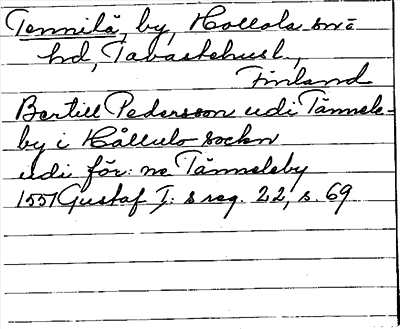 Tennilä, by, Hollola sn
hd, Tavastehusl.,
Finland
Bertill Pedersson udi Tännele-
by i Hållulo sockn
udi för: ne Tänneleby
1551 Gustaf I: s reg. 22, s. 69